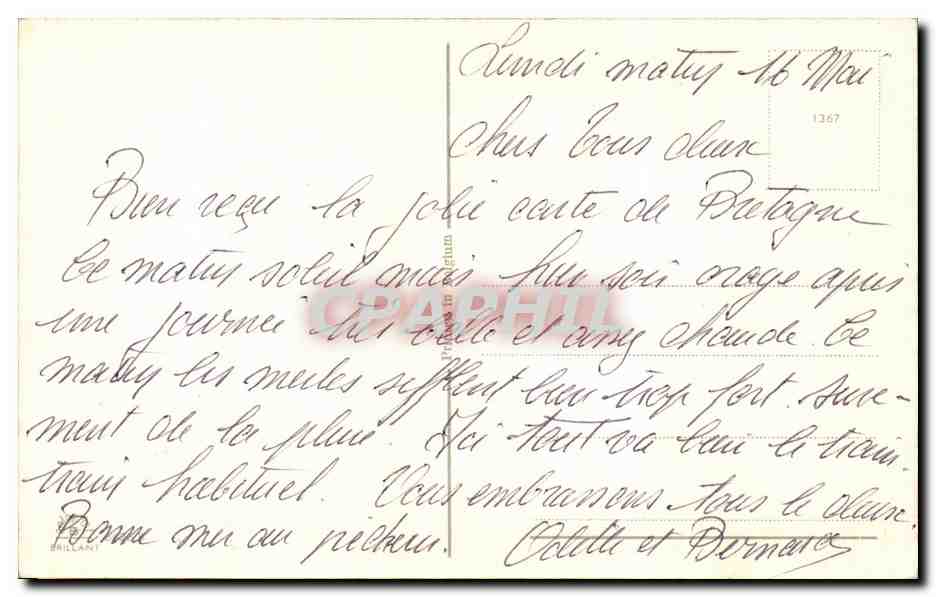 Lundi matin 16 Mai
1367
Chers Tous deux
Bien reçu la jolie carte de Bretagne
Ce matin soleil mais hier soir orage après
une journée très belle et assez chaude. Ce
matin les merles sifflent bien trop fort. Sure-
ment de la pluie. Ici tout va bien le train-
train habituel. Vous embrassons tous le deux.
Bonne mer au pêcheur. Odette et Bernard
Printed in Belgium
BRILLANT
CPAPHIL